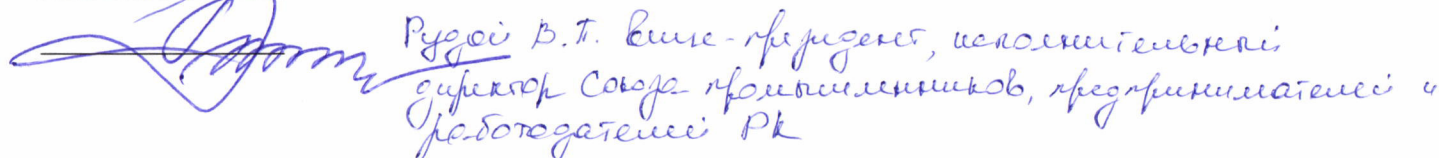 Рудой В.П. вице-президент, исполнительный
директор Союза промышленников, предпринимателей и
работодателей РК